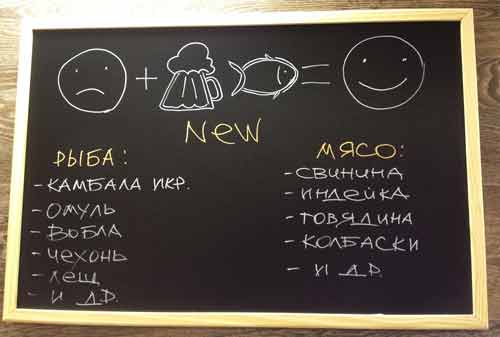 NEW
РЫБА:
- КАМБАЛА ИКР.
- ОМУЛЬ
- ВОБЛА
- ЧЕХОНЬ
- ЛЕЩ
- И ДР.
МЯСО:
- СВИНИНА
- ИНДЕЙКА
- ГОВЯДИНА
- КОЛБАСКИ
- И ДР.